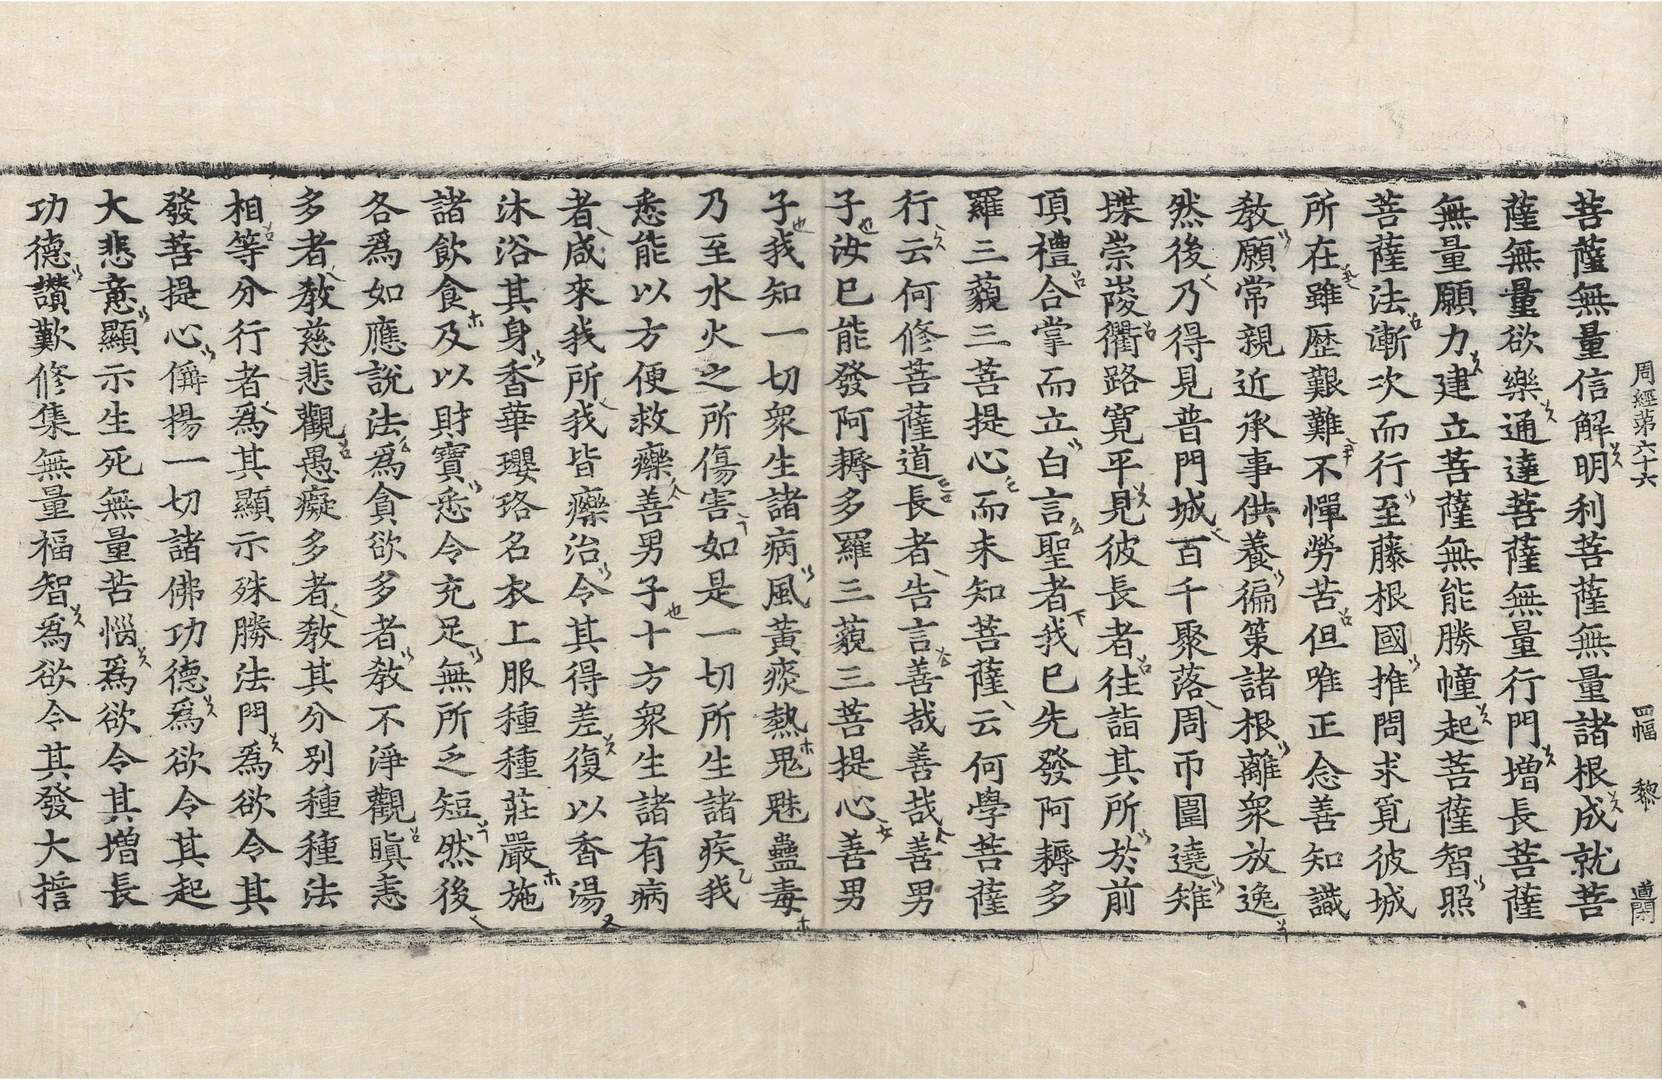 周經第六十六 四幅 黎 道閑
菩薩無量信解明利菩薩無量諸根成就菩
薩無量欲樂通達菩薩無量行門增長菩薩
無量願力建立菩薩無能勝幢起菩薩智照
菩薩法漸次而行至藤根國推問求覓彼城
所在雖歷艱難不憚勞苦但唯正念善知識
敎願常親近承事供養徧策諸根離衆放逸
然後乃得見普門城百千聚落周帀圍遶雉
堞崇峻衢路寬平見彼長者往詣其所於前
頂禮合掌而立白言聖者我已先發阿耨多
羅三藐三菩提心而未知菩薩云何學菩薩
行云何修菩薩道長者告言善哉善哉善男
子汝已能發阿耨多羅三藐三菩提心善男
子我知一切衆生諸病風黃痰熱鬼魅蠱毒
乃至水火之所傷害如是一切所生諸疾我
悉能以方便救療善男子十方衆生諸有病
者咸來我所我皆療治令其得差復以香湯
沐浴其身香華瓔珞名衣上服種種莊嚴施
諸飮食及以財寶悉令充足無所乏短然後
各爲如應說法爲貪欲多者敎不淨觀瞋恚
多者敎慈悲觀愚癡多者敎其分別種種法
相等分行者爲其顯示殊勝法門爲欲令其
發菩提心偁揚一切諸佛功德爲欲令其起
大悲意顯示生死無量苦惱爲欲令其增長
功德讚歎修集無量福智爲欲令其發大誓